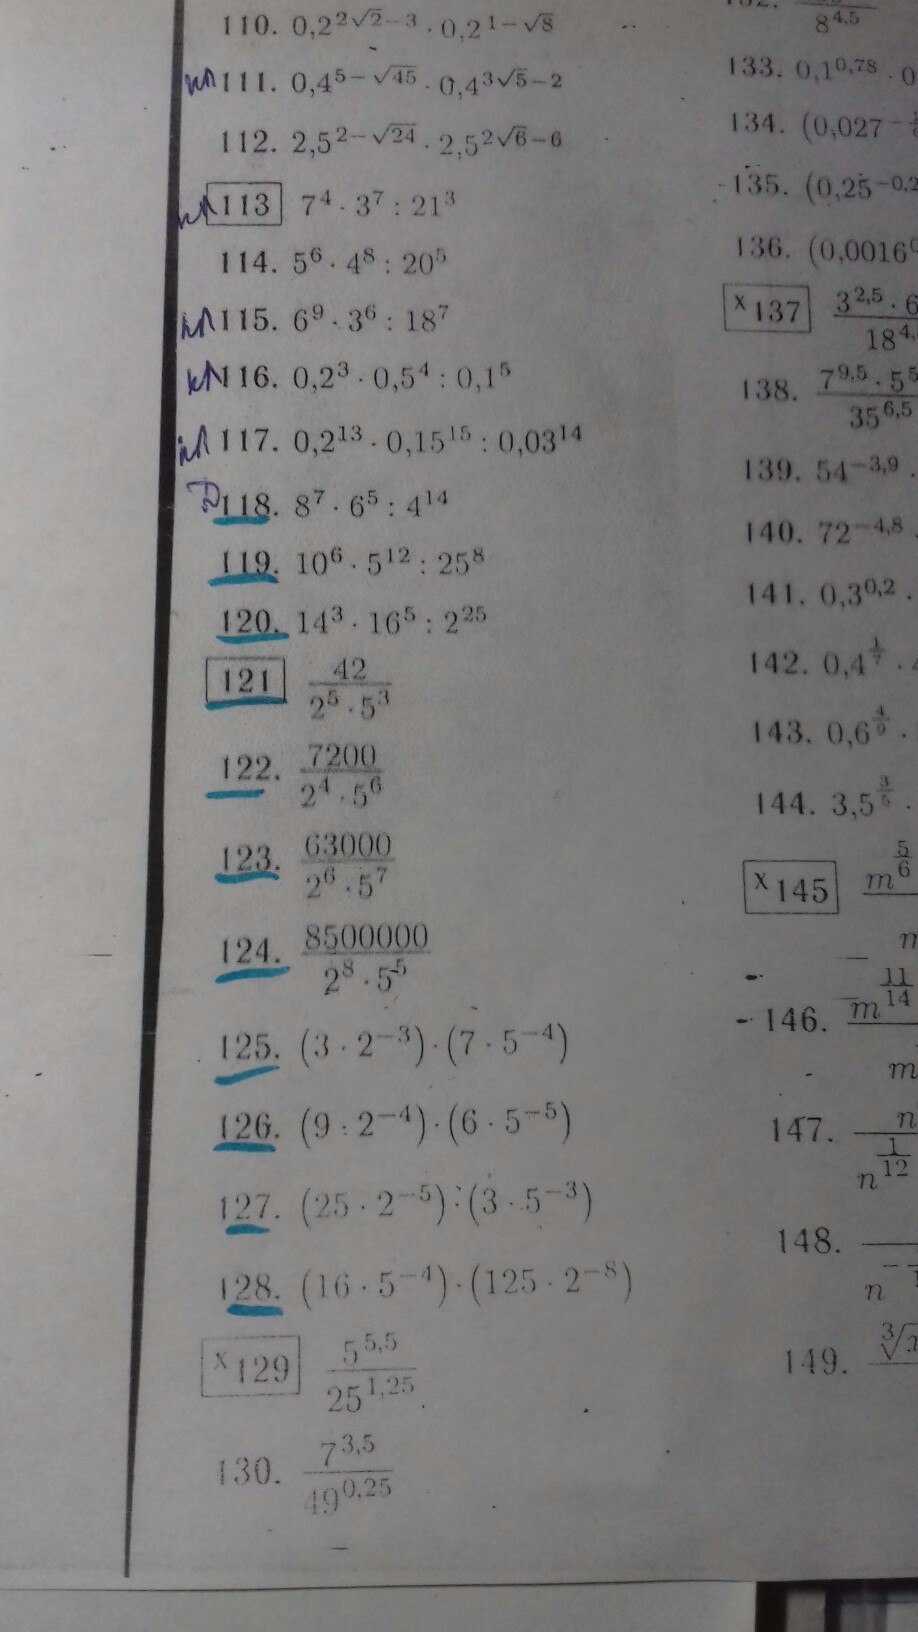 110. 0,2^{2√2−3} · 0,2^{1−√8}
111. 0,4^{5−√45} · 0,4^{3√5−2}
112. 2,5^{2−√24} · 2,5^{2√6−6}
113 7⁴ · 3⁷ : 21³
114. 5⁶ · 4⁸ : 20⁵
115. 6⁹ · 3⁶ : 18⁷
116. 0,2³ · 0,5⁴ : 0,1⁵
117. 0,2¹³ · 0,15¹⁵ : 0,03¹⁴
118. 8⁷ · 6⁵ : 4¹⁴
119. 10⁶ · 5¹² : 25⁸
120. 14³ · 16⁵ : 2²⁵
121 42 / (2⁵ · 5³)
122. 7200 / (2⁴ · 5⁶)
123. 63000 / (2⁶ · 5⁷)
124. 8500000 / (2⁸ · 5⁵)
125. (3 · 2⁻³) · (7 · 5⁻⁴)
126. (9 : 2⁻⁴) · (6 · 5⁻⁵)
127. (25 · 2⁻⁵) : (3 · 5⁻³)
128. (16 · 5⁻⁴) · (125 · 2⁻⁸)
x 129 5^{5,5} / 25^{1,25}
130. 7^{3,5} / 49^{0,25}
8^{4,5}
133. 0,1^{0,78} · 0
134. (0,027
135. (0,25^{−0,2
136. (0,0016
x 137 3^{2,5} · 6 / 18^{4,
138. 7^{9,5} · 5⁵ / 35^{6,5}
139. 54^{−3,9} ·
140. 72^{−4,8}
141. 0,3^{0,2} ·
142. 0,4^{1/7} ·
143. 0,6^{4/9} ·
144. 3,5^{3/5} ·
x 145 m^{5/6} / m
146. m^{11/14} / m
147. n / n^{1/12}
148. n
149. ∛